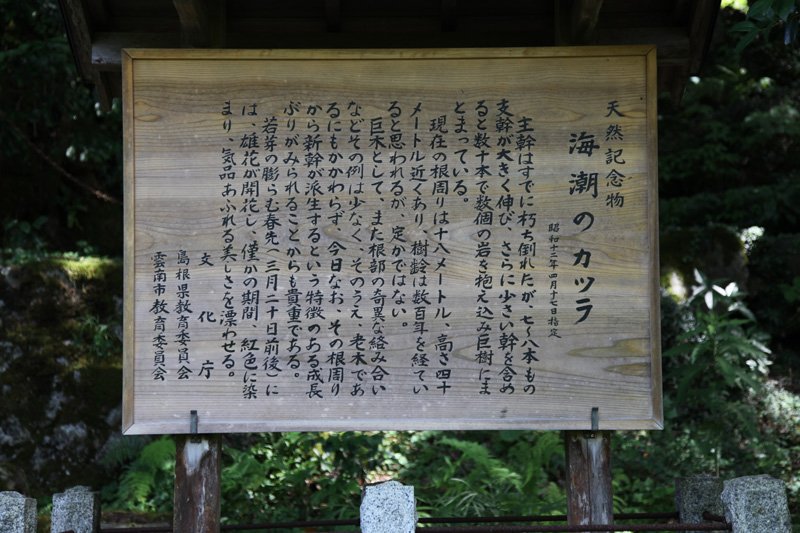 天然記念物
海潮のカツラ
昭和十二年四月十七日指定
主幹はすでに朽ち倒れたが、七〜八本もの
支幹が大きく伸び、さらに少さい幹を含め
ると数十本で数個の岩を抱え込み巨樹にま
とまっている。
現在の根周りは十八メートル、高さ四十
メートル近くあり、樹齢は数百年を経てい
ると思われるが、定かではない。
巨木として、また根部の奇異な絡み合い
などその例は少なく、そのうえ、老木であ
るにもかかわらず、今日なお、その根周り
から新幹が派生するという特徴のある成長
ぶりがみられることからも貴重である。
若芽の膨らむ春先(三月二十日前後)に
は、雄花が開花し、僅かの期間、紅色に染
まり、気品あふれる美しさを漂わせる。
文化庁
島根県教育委員会
雲南市教育委員会